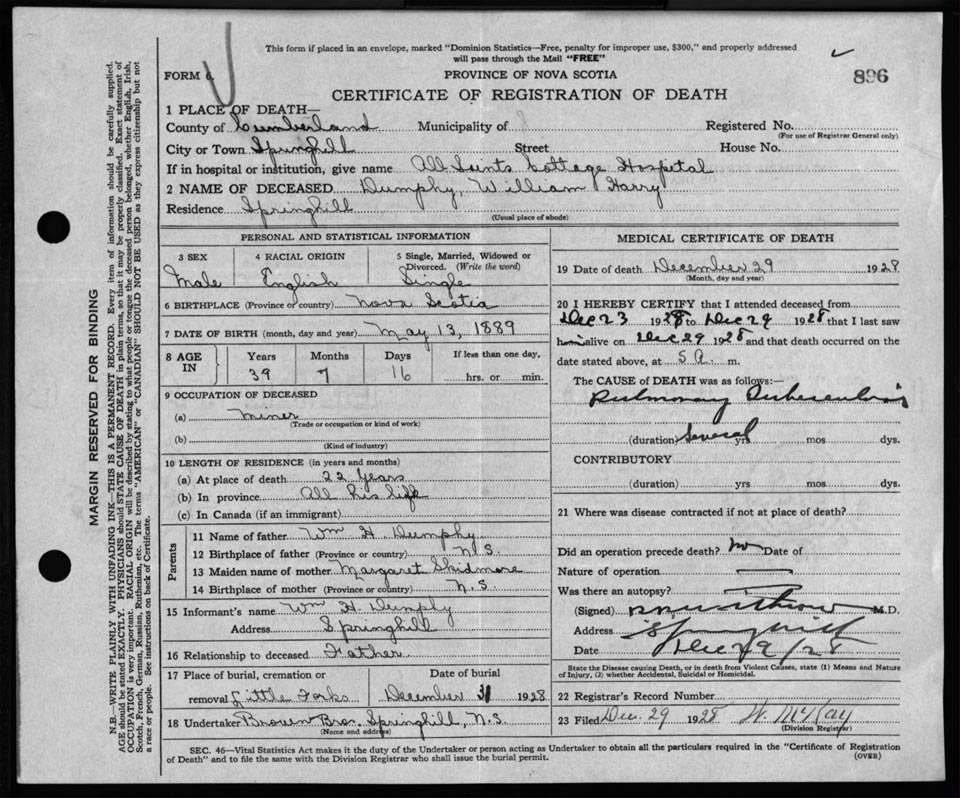 This form if placed in an envelope, marked "Dominion Statistics—Free, penalty for improper use, $300," and properly addressed
will pass through the Mail "FREE"
FORM
PROVINCE OF NOVA SCOTIA
896
CERTIFICATE OF REGISTRATION OF DEATH
1 PLACE OF DEATH—
County of Cumberland Municipality of Registered No.
(For use of Registrar General only)
City or Town Springhill Street House No.
If in hospital or institution, give name All Saints Cottage Hospital
2 NAME OF DECEASED Dumphy, William Harry
Residence Springhill
(Usual place of abode)
PERSONAL AND STATISTICAL INFORMATION
3 SEX 4 RACIAL ORIGIN 5 Single, Married, Widowed or Divorced. (Write the word)
Male English Single
6 BIRTHPLACE (Province or country) Nova Scotia
7 DATE OF BIRTH (month, day and year) May 13, 1889
8 AGE IN Years Months Days If less than one day,
39 7 16 hrs. or min.
9 OCCUPATION OF DECEASED
(a) Miner
(Trade or occupation or kind of work)
(b)
(Kind of industry)
10 LENGTH OF RESIDENCE (in years and months)
(a) At place of death 22 Years
(b) In province All his life
(c) In Canada (if an immigrant)
Parents
11 Name of father Wm H. Dumphy
12 Birthplace of father (Province or country) N.S.
13 Maiden name of mother Margaret Skidmore
14 Birthplace of mother (Province or country) N.S.
15 Informant's name Wm H. Dumphy
Address Springhill
16 Relationship to deceased Father
17 Place of burial, cremation or Date of burial
removal Little Forks December 31 1928
18 Undertaker Brown Bros. Springhill, N.S.
(Name and address)
MEDICAL CERTIFICATE OF DEATH
19 Date of death December 29 1928
(Month, day and year)
20 I HEREBY CERTIFY that I attended deceased from
Dec 23 1928 to Dec 29 1928 that I last saw
him alive on Dec 29 1928 and that death occurred on the
date stated above, at 5 a. m.
The CAUSE of DEATH was as follows:—
Pulmonary Tuberculosis
(duration) Several yrs mos dys.
CONTRIBUTORY
(duration) yrs mos dys.
21 Where was disease contracted if not at place of death?
Did an operation precede death? no Date of
Nature of operation
Was there an autopsy?
(Signed) M.D.
Address Springhill
Date Dec 29/28
State the Disease causing Death, or in death from Violent Causes, state (1) Means and Nature
of Injury, (2) whether Accidental, Suicidal or Homicidal.
22 Registrar's Record Number
23 Filed Dec. 29 1928 W. McKay
(Division Registrar)
SEC. 46—Vital Statistics Act makes it the duty of the Undertaker or person acting as Undertaker to obtain all the particulars required in the "Certificate of Registration
of Death" and to file the same with the Division Registrar who shall issue the burial permit. (OVER)
MARGIN RESERVED FOR BINDING
N.B.—WRITE PLAINLY WITH UNFADING INK—THIS IS A PERMANENT RECORD. Every item of information should be carefully supplied.
AGE should be stated EXACTLY. PHYSICIANS should STATE CAUSE OF DEATH in plain terms, so that it may be properly classified. Exact statement of
OCCUPATION is very important. RACIAL ORIGIN will be described by stating to what people or tongue the deceased person belonged, whether English, Irish,
Scotch, French, German, Russian, Ruthenian, etc. The terms "AMERICAN" or "CANADIAN" SHOULD NOT BE USED as they express citizenship but not
a race or people. See instructions on back of Certificate.